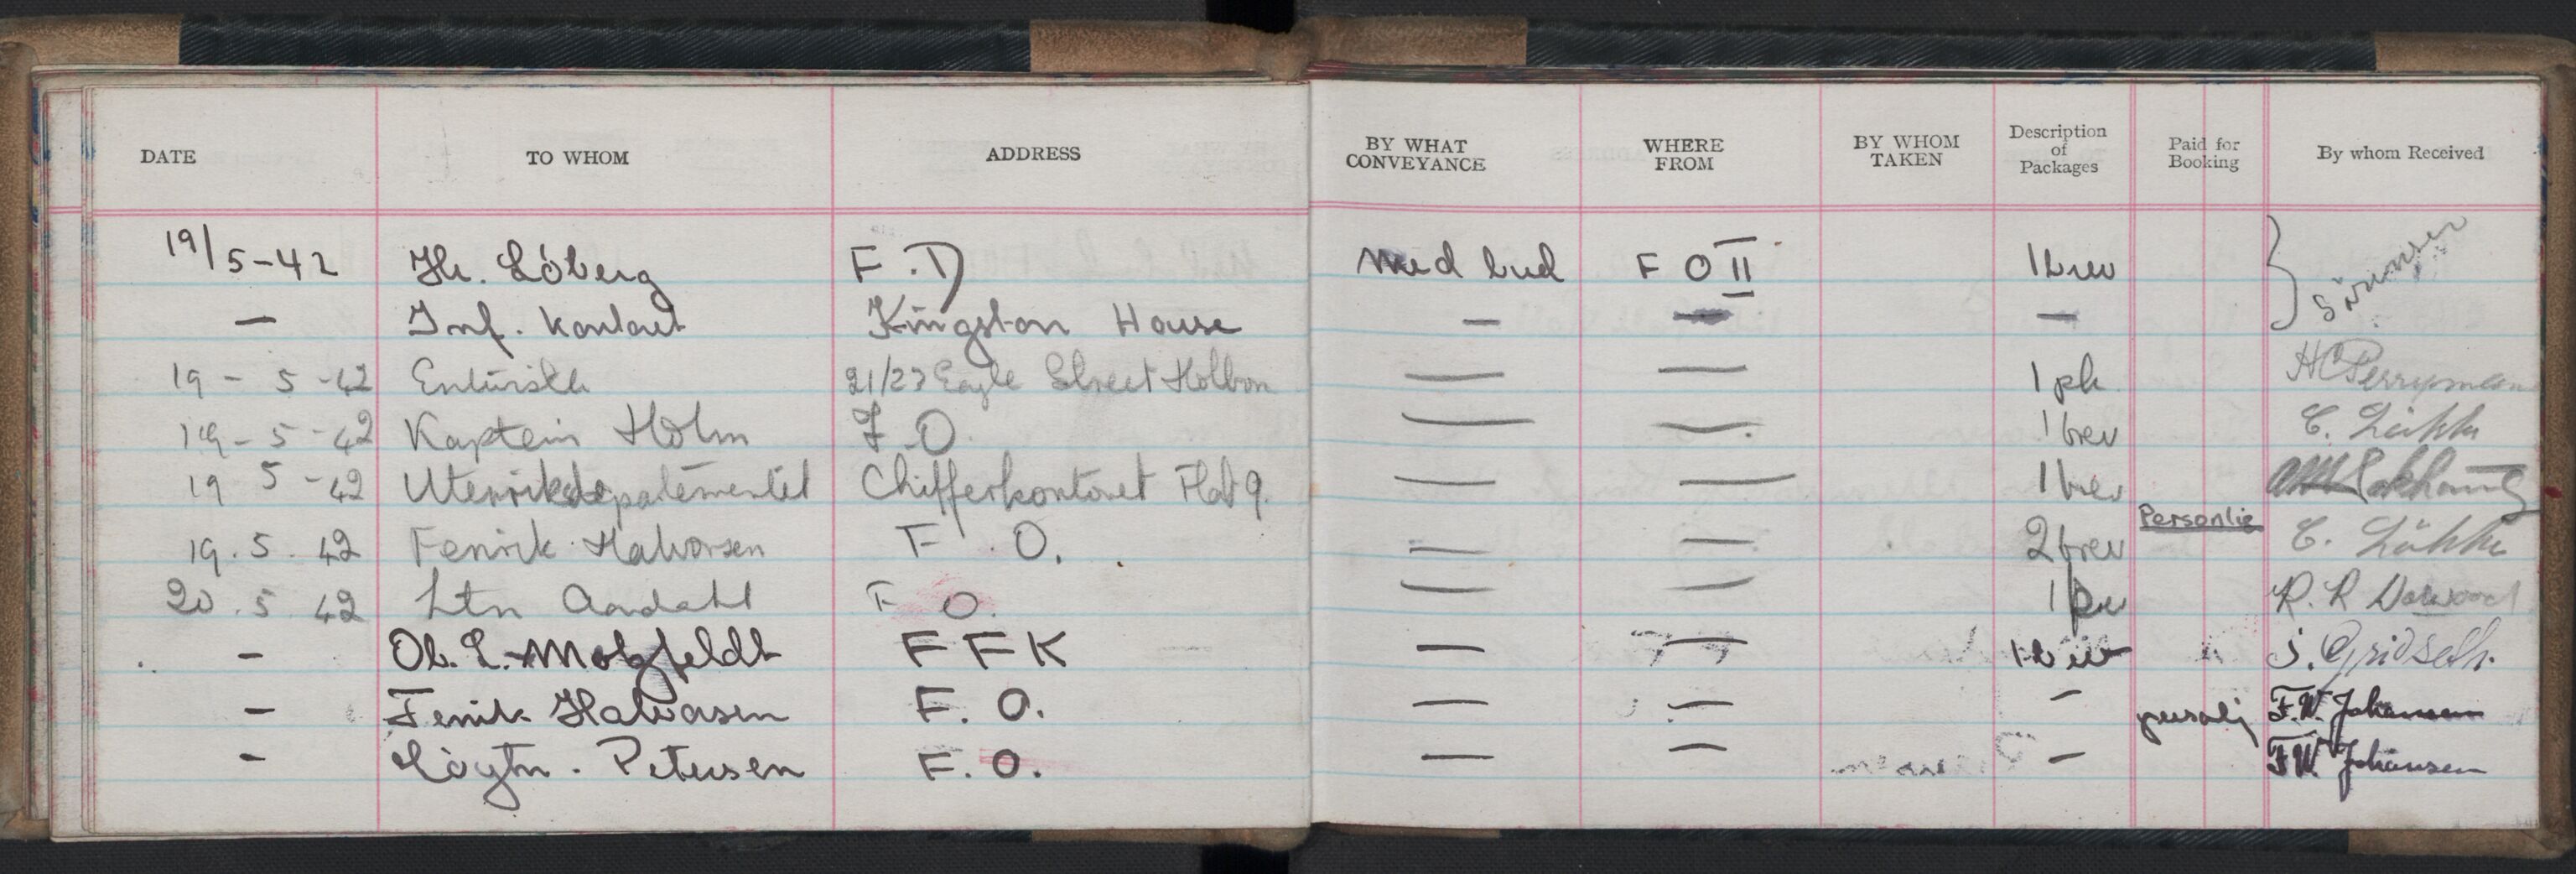 DATE TO WHOM ADDRESS BY WHAT CONVEYANCE WHERE FROM BY WHOM TAKEN Description of Packages Paid for Booking By whom Received
19/5-42 Hr. Löberg F.D med bud F O II 1 brev
— Inf. kontoret Kingston House — — —
19-5-42 21/23 Eagle Street Holborn — — 1 pk. HC Perryman
19-5-42 Kaptein Holm F.O. — — 1 brev
19 5-42 Utenriksdepatementet Chifferkontoret Flat 9. — — 1 brev
19.5.42 Fenrik Halvorsen F.O. — — 2 brev Personlig
20.5 42 Ltn Aandahl F O. — — 1 brev
- Ob. L. Motzfeldt F F K — — 1 brev
- Fenrik Halvorsen F.O. — — - F.W. Johansen
- Löytn. Petersen F.O. — — - F.W. Johansen